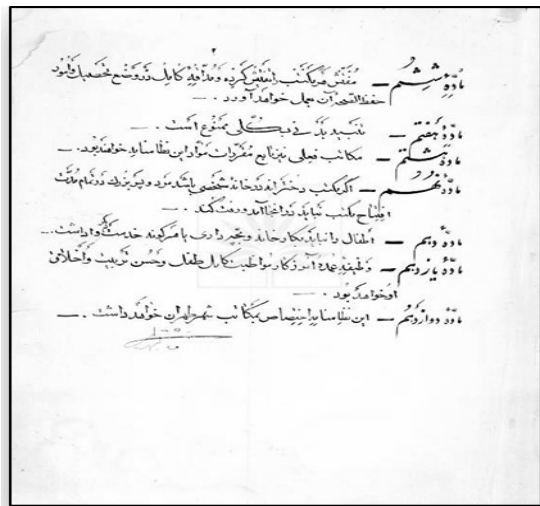 ۲
مادّهٔ ششم — مفتش هر مکتب را تفتیش کرده و مداقهٔ کامل در وضع تحصیل و امور
حفظ الصحهٔ آن بعمل خواهد آورد . —
مادّهٔ هفتم — تنبیه بدنی بکلی ممنوع است . —
مادّهٔ هشتم — مکاتب فعلی نیز تابع مقررات مواد این نظامنامه خواهند بود . —
مادّهٔ نهم — اگر مکتب دخترانه در خانهٔ شخصی باشد مرد و پسر بزرگ در تمام مدّت
افتتاح مکتب نباید در آنجا آمد و رفت کند . —
مادّهٔ دهم — اطفال را نباید بکار خانه و بچه داری یا هرگونه خدمت دیگر واداشت . —
مادّهٔ یازدهم — وظیفهٔ عمدهٔ آموزگار مواظبت کامل طفل و حسن تربیت و اخلاق
او خواهد بود . —
مادّهٔ دوازدهم — این نظامنامه اختصاص بمکاتب شهر طهران خواهد داشت . —